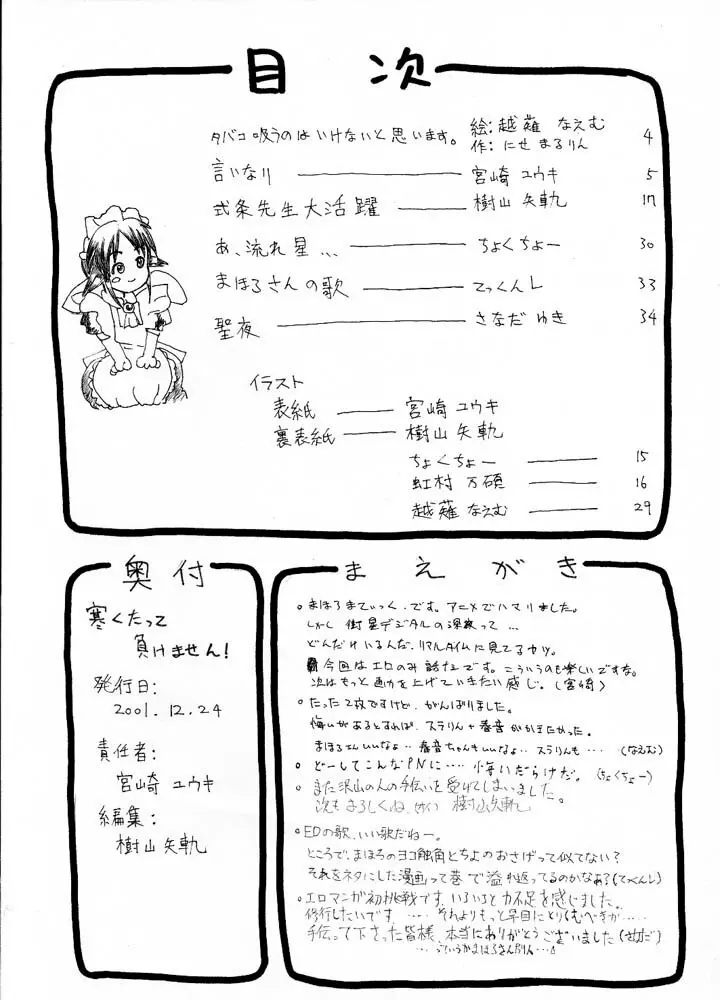 目次
タバコ吸うのはいけないと思います。 絵:越薙 なえむ 4
作:にせまるりん
言いなり 宮崎 ユウキ 5
式条先生大活躍 樹山 矢軌 17
あ、流れ星… ちょくちょー 30
まほろさんの歌 てっくんL 33
聖夜 さなだ ゆき 34
イラスト
表紙 宮崎 ユウキ
裏表紙 樹山 矢軌
ちょくちょー 15
虹村 万碩 16
越薙 なえむ 29
奥付
寒くたって
負けません!
発行日:
2001.12.24
責任者:
宮崎 ユウキ
編集:
樹山 矢軌
まえがき
○まほろまてぃっく.です。アニメでハマりました。
しかし 衛星デジタルの深夜って…
どんだけいるんだ、リアルタイムに見てるヤツ。
今回はエロのみ話なとです。こういうのも楽しいですな。
次はもっと画力を上げていきたい感じ。(宮崎)
○たった2枚ですけど、がんばりました。
悔いがあるとすれば、スラりん+春音がかきたかった。
まほろさんいいなょ‥春音ちゃんもいいなょ‥スラりんも‥‥ (なえむ)
○どーしてこんなPNに‥‥悔いだらけだ。(ちょくちょー)
○また沢山の人の手伝いを受けてしまいました。
次もよろしくね. 樹山矢軌
○EDの歌、いい歌だねー。
ところで、まほろのヨコ触角とちよのおさげって似てない?
それをネタにした漫画って巷で溢れ返ってるのかなぁ?(てっくんL)
○エロマンガ初挑戦です。いろいろと力不足を感じました。
修行したいです ‥‥ それよりもっと早目にとりくむべきが‥‥
手伝って下さった皆様、本当にありがとうございました(さなだ)
‥っていうかまほろさん